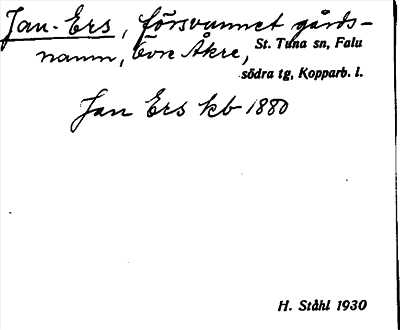 Jan-Ers, försvunnet gårds-
namn, Övre Åkre, St. Tuna sn, Falu
södra tg, Kopparb. l.
Jan Ers kb 1880
H. Ståhl 1930